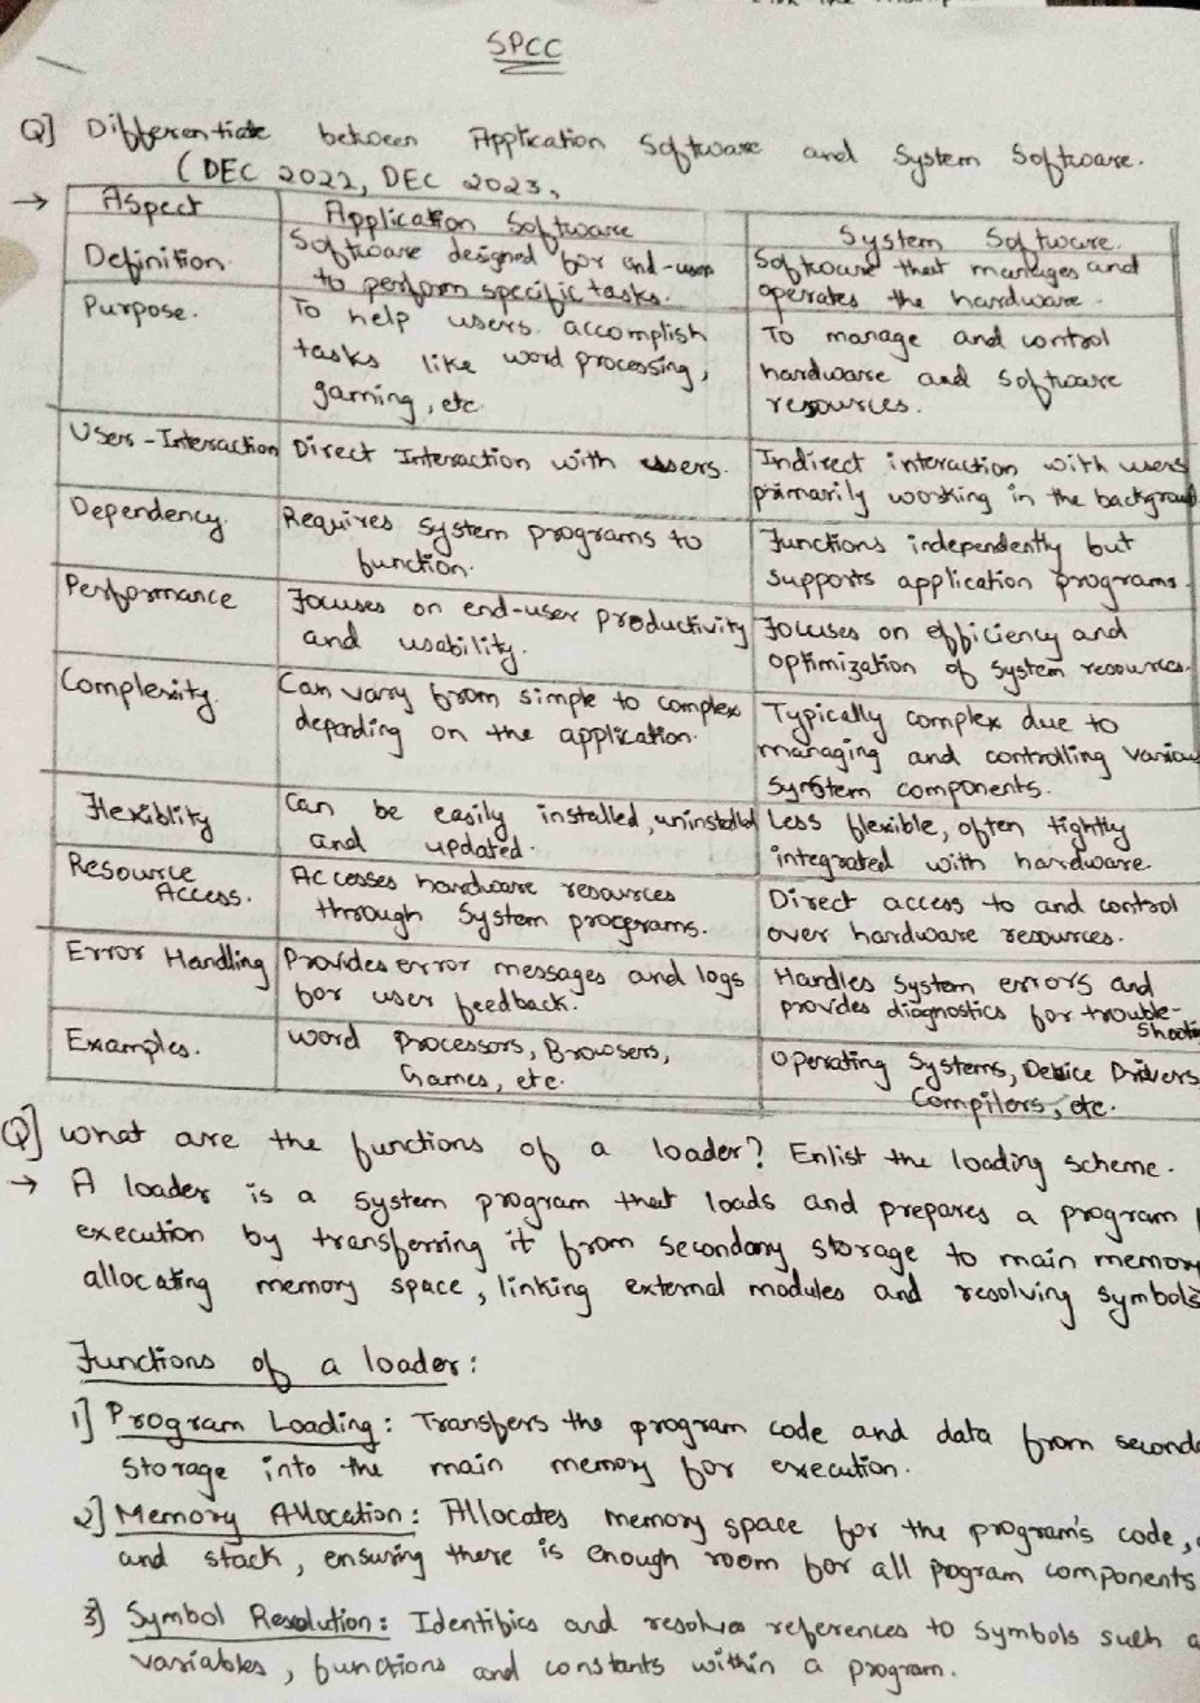 SPCC
Q] Differentiate between Application Software and System Software.
(DEC 2022, DEC 2023,
→ Aspect | Application Software | System Software.
Definition. | Software designed for end-user | Software that manages and
to perform specific tasks. | operates the hardware.
Purpose. | To help users accomplish | To manage and control
tasks like word processing, | hardware and software
gaming, etc. | resources.
Users-Interaction | Direct Interaction with users. | Indirect interaction with users
primarily working in the background
Dependency. | Requires system programs to | Functions independently but
function. | supports application programs.
Performance | Focuses on end-user productivity | Focuses on efficiency and
and usability. | optimization of system resources.
Complexity. | Can vary from simple to complex | Typically complex due to
depending on the application. | managing and controlling various
system components.
Flexiblity | Can be easily installed, uninstalled | Less flexible, often tightly
and updated. | integrated with hardware.
Resource | Accesses hardware resources | Direct access to and control
Access. | through system programs. | over hardware resources.
Error Handling | Provides error messages and logs | Handles system errors and
for user feedback. | provides diagnostics for trouble-
shooting
Examples. | Word Processors, Browsers, | Operating Systems, Device Drivers
Games, etc. | Compilers, etc.
Q] What are the functions of a loader? Enlist the loading scheme.
→ A loader is a system program that loads and prepares a program
execution by transferring it from secondary storage to main memory
allocating memory space, linking external modules and resolving symbols
Functions of a loader:
1] Program Loading: Transfers the program code and data from seconda
storage into the main memory for execution.
2] Memory Allocation: Allocates memory space for the program's code,
and stack, ensuring there is enough room for all pogram components
3] Symbol Resolution: Identifies and resolves references to symbols such a
variables, functions and constants within a program.